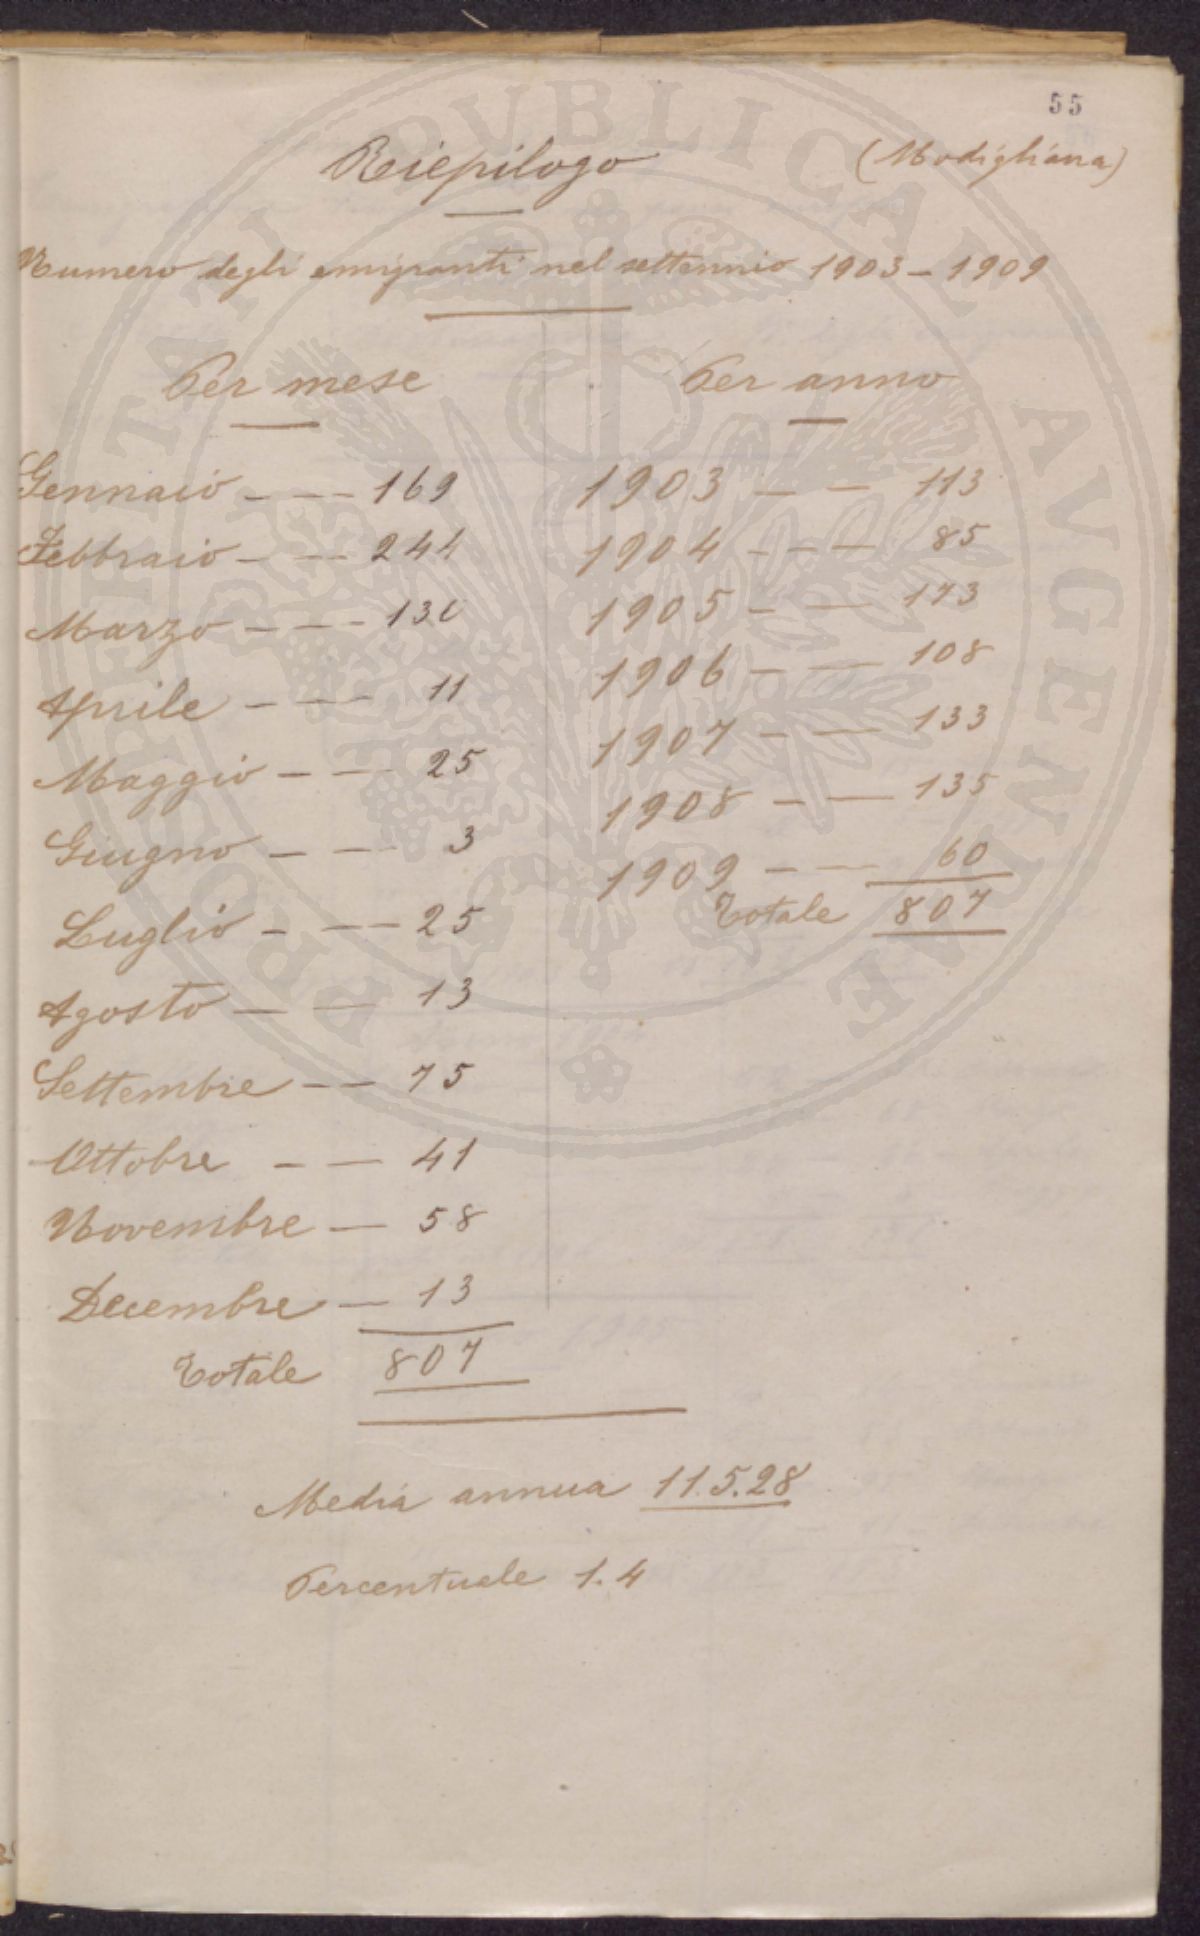 55
Riepilogo
(Modigliana)
Numero degli emigranti nel settennio 1903 - 1909
Per mese
Gennaio - - - 169
Febbraio - - - 244
Marzo - - - 130
Aprile - - - 11
Maggio - - - 25
Giugno - - - 3
Luglio - - - 25
Agosto - - 13
Settembre - - 75
Ottobre - - 41
Novembre - 58
Decembre - 13
Totale 807
Per anno
1903 - - 113
1904 - - - 85
1905 - - 173
1906 - - 108
1907 - - 133
1908 - - 135
1909 - - 60
Totale 807
Media annua 11.5.28
Percentuale 1.4
PROSPERITATI PVBLICAE AVGENDAE